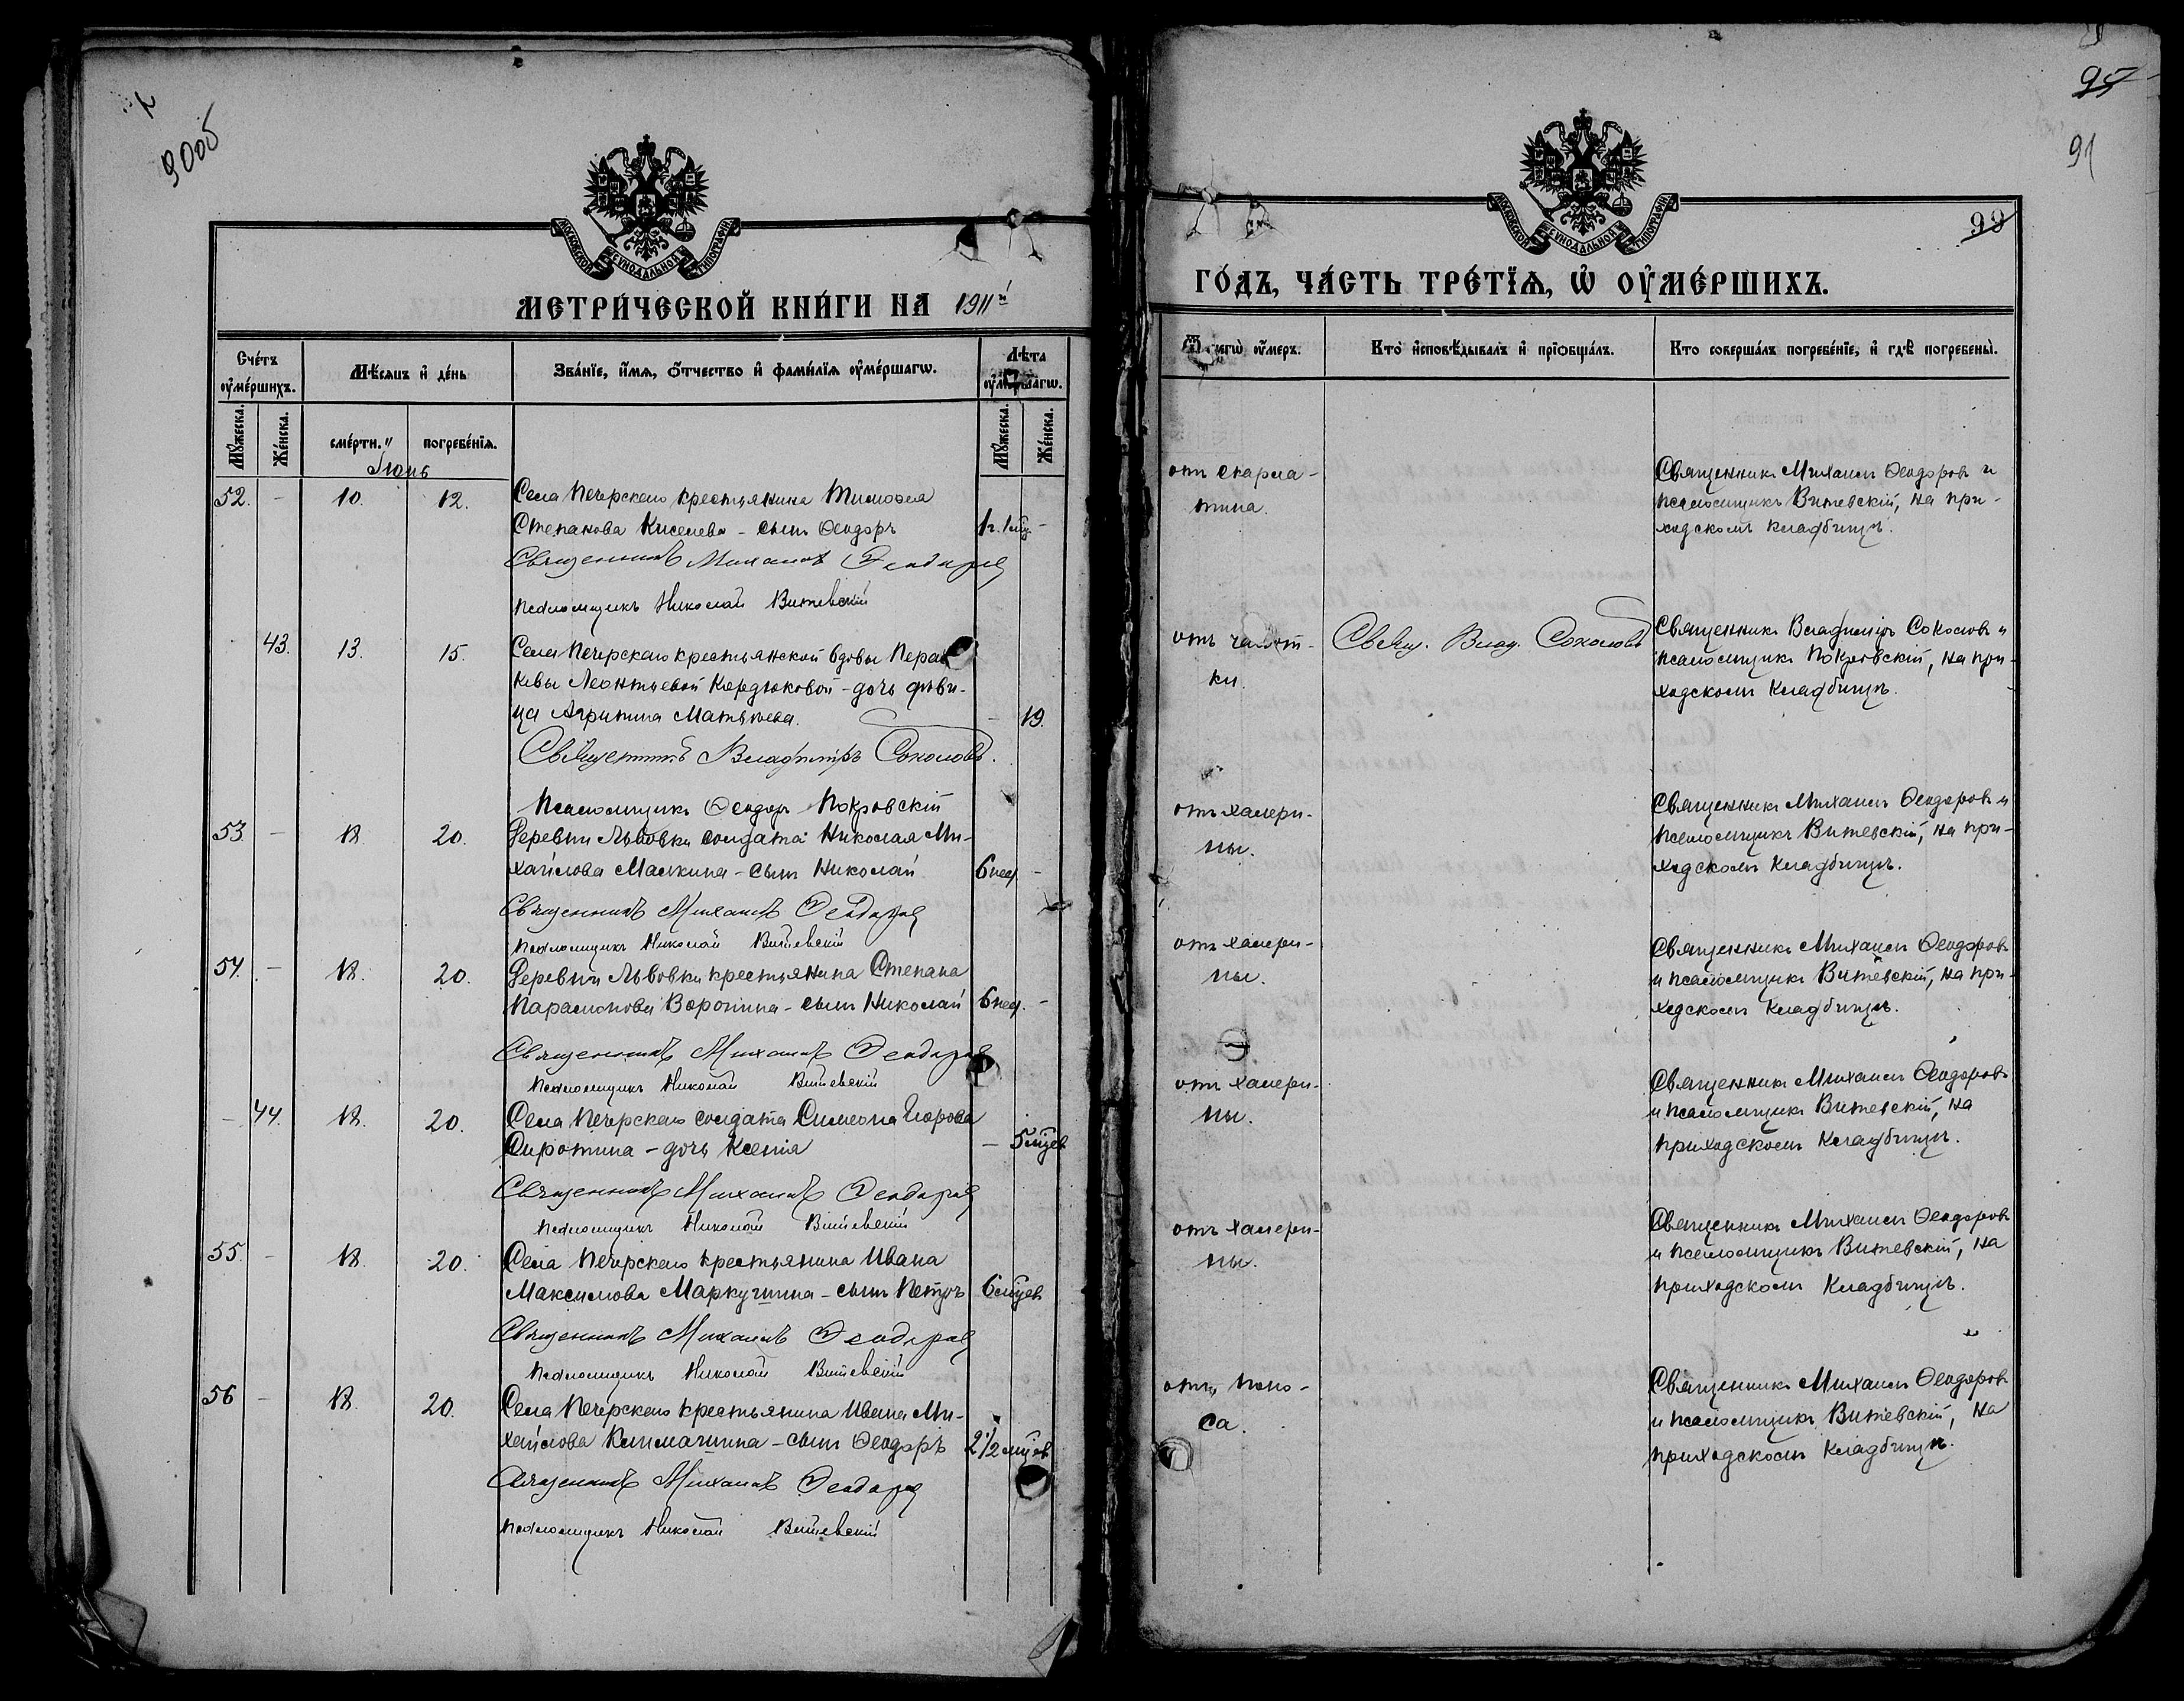 90об
95
91
99
МОСКОВСКОЙ СѴНОДАЛЬНОЙ ТИПОГРАФІИ
МОСКОВСКОЙ СѴНОДАЛЬНОЙ ТИПОГРАФІИ
МЕТРИ́ЧЕСКОЙ КНИ́ГИ НА 1911й
ГО́ДЪ, ЧА́СТЬ ТРЕ́ТЇѦ, Ѡ҆ ОУ҆МЕ́РШИХЪ.
Сче́тъ оу҆ме́ршихъ.
Мѣ́сѧцъ и҆ де́нь
Зва́нїе, и҆́мѧ, ѻ҆́тчество и҆ фами́лїѧ оу҆ме́ршагѡ.
Лѣ́та оу҆ме́ршагѡ.
оу҆́меръ.
Кто̀ и҆сповѣ́дывалъ и҆ прїѡбща́лъ.
Кто соверша́лъ погребе́нїе, и҆ гдѣ̀ погребены̀.
Мꙋ́жеска.
Же́нска.
сме́рти.
погребе́нїѧ.
Мꙋ́жеска.
Же́нска.
Іюнь
52. - 10. 12. Села Печерскаго крестьянина Тимоѳея
Степанова Киселева - сынъ Ѳеодоръ 1г. 1мц. -
Священникъ Михаилъ Ѳеодоровъ
Псаломщикъ Николай Витевскій
отъ скарла-
тина.
Священникъ Михаилъ Ѳеодоровъ и
псаломщикъ Витевскій, на при-
ходскомъ кладбищѣ.
43. 13. 15. Села Печерскаго крестьянской вдовы Парас
кевы Леонтьевой Кердюковой - дочь дѣви-
ца Агрипина Матвѣева. - 19.
Священникъ Владиміръ Соколовъ.
Псаломщикъ Ѳеодоръ Покровскій
отъ чахот-
ки.
Свящ. Влад. Соколовъ
Священникъ Владиміръ Соколовъ и
псаломщикъ Покровскій, на при-
ходскомъ кладбищѣ.
53. - 18. 20. Деревни Львовки солдата Николая Ми-
хайлова Малкина - сынъ Николай 6 нед. -
Священникъ Михаилъ Ѳеодоровъ
Псаломщикъ Николай Витевскій
отъ халери-
ны.
Священникъ Михаилъ Ѳеодоровъ и
псаломщикъ Витевскій, на при-
ходскомъ кладбищѣ.
54. - 18. 20. Деревни Львовки крестьянина Степана
Парамонова Воронина - сынъ Николай 6 нед. -
Священникъ Михаилъ Ѳеодоровъ
Псаломщикъ Николай Витевскій
отъ халери-
ны.
Священникъ Михаилъ Ѳеодоровъ
и псаломщикъ Витевскій, на при-
ходскомъ кладбищѣ.
- 44. 18. 20. Села Печерскаго солдата Симеона Егорова
Сиротина - дочь Ксенія - 5 мцев
Священникъ Михаилъ Ѳеодоровъ
Псаломщикъ Николай Витевскій
отъ халери-
ны.
Священникъ Михаилъ Ѳеодоровъ
и псаломщикъ Витевскій, на
приходскомъ кладбищѣ.
55. - 18. 20. Села Печерскаго крестьянина Ивана
Максимова Маркушина - сынъ Петръ 6 мцев
Священникъ Михаилъ Ѳеодоровъ
Псаломщикъ Николай Витевскій
отъ халери-
ны.
Священникъ Михаилъ Ѳеодоровъ
и псаломщикъ Витевскій, на
приходскомъ кладбищѣ.
56 - 18. 20. Села Печерскаго крестьянина Ивана Ми-
хайлова - сынъ Ѳеодоръ 2 1/2 мцев
Священникъ Михаилъ Ѳеодоровъ
Псаломщикъ Николай Витевскій
отъ поно-
са.
Священникъ Михаилъ Ѳеодоровъ
и псаломщикъ Витевскій, на
приходскомъ кладбищѣ.